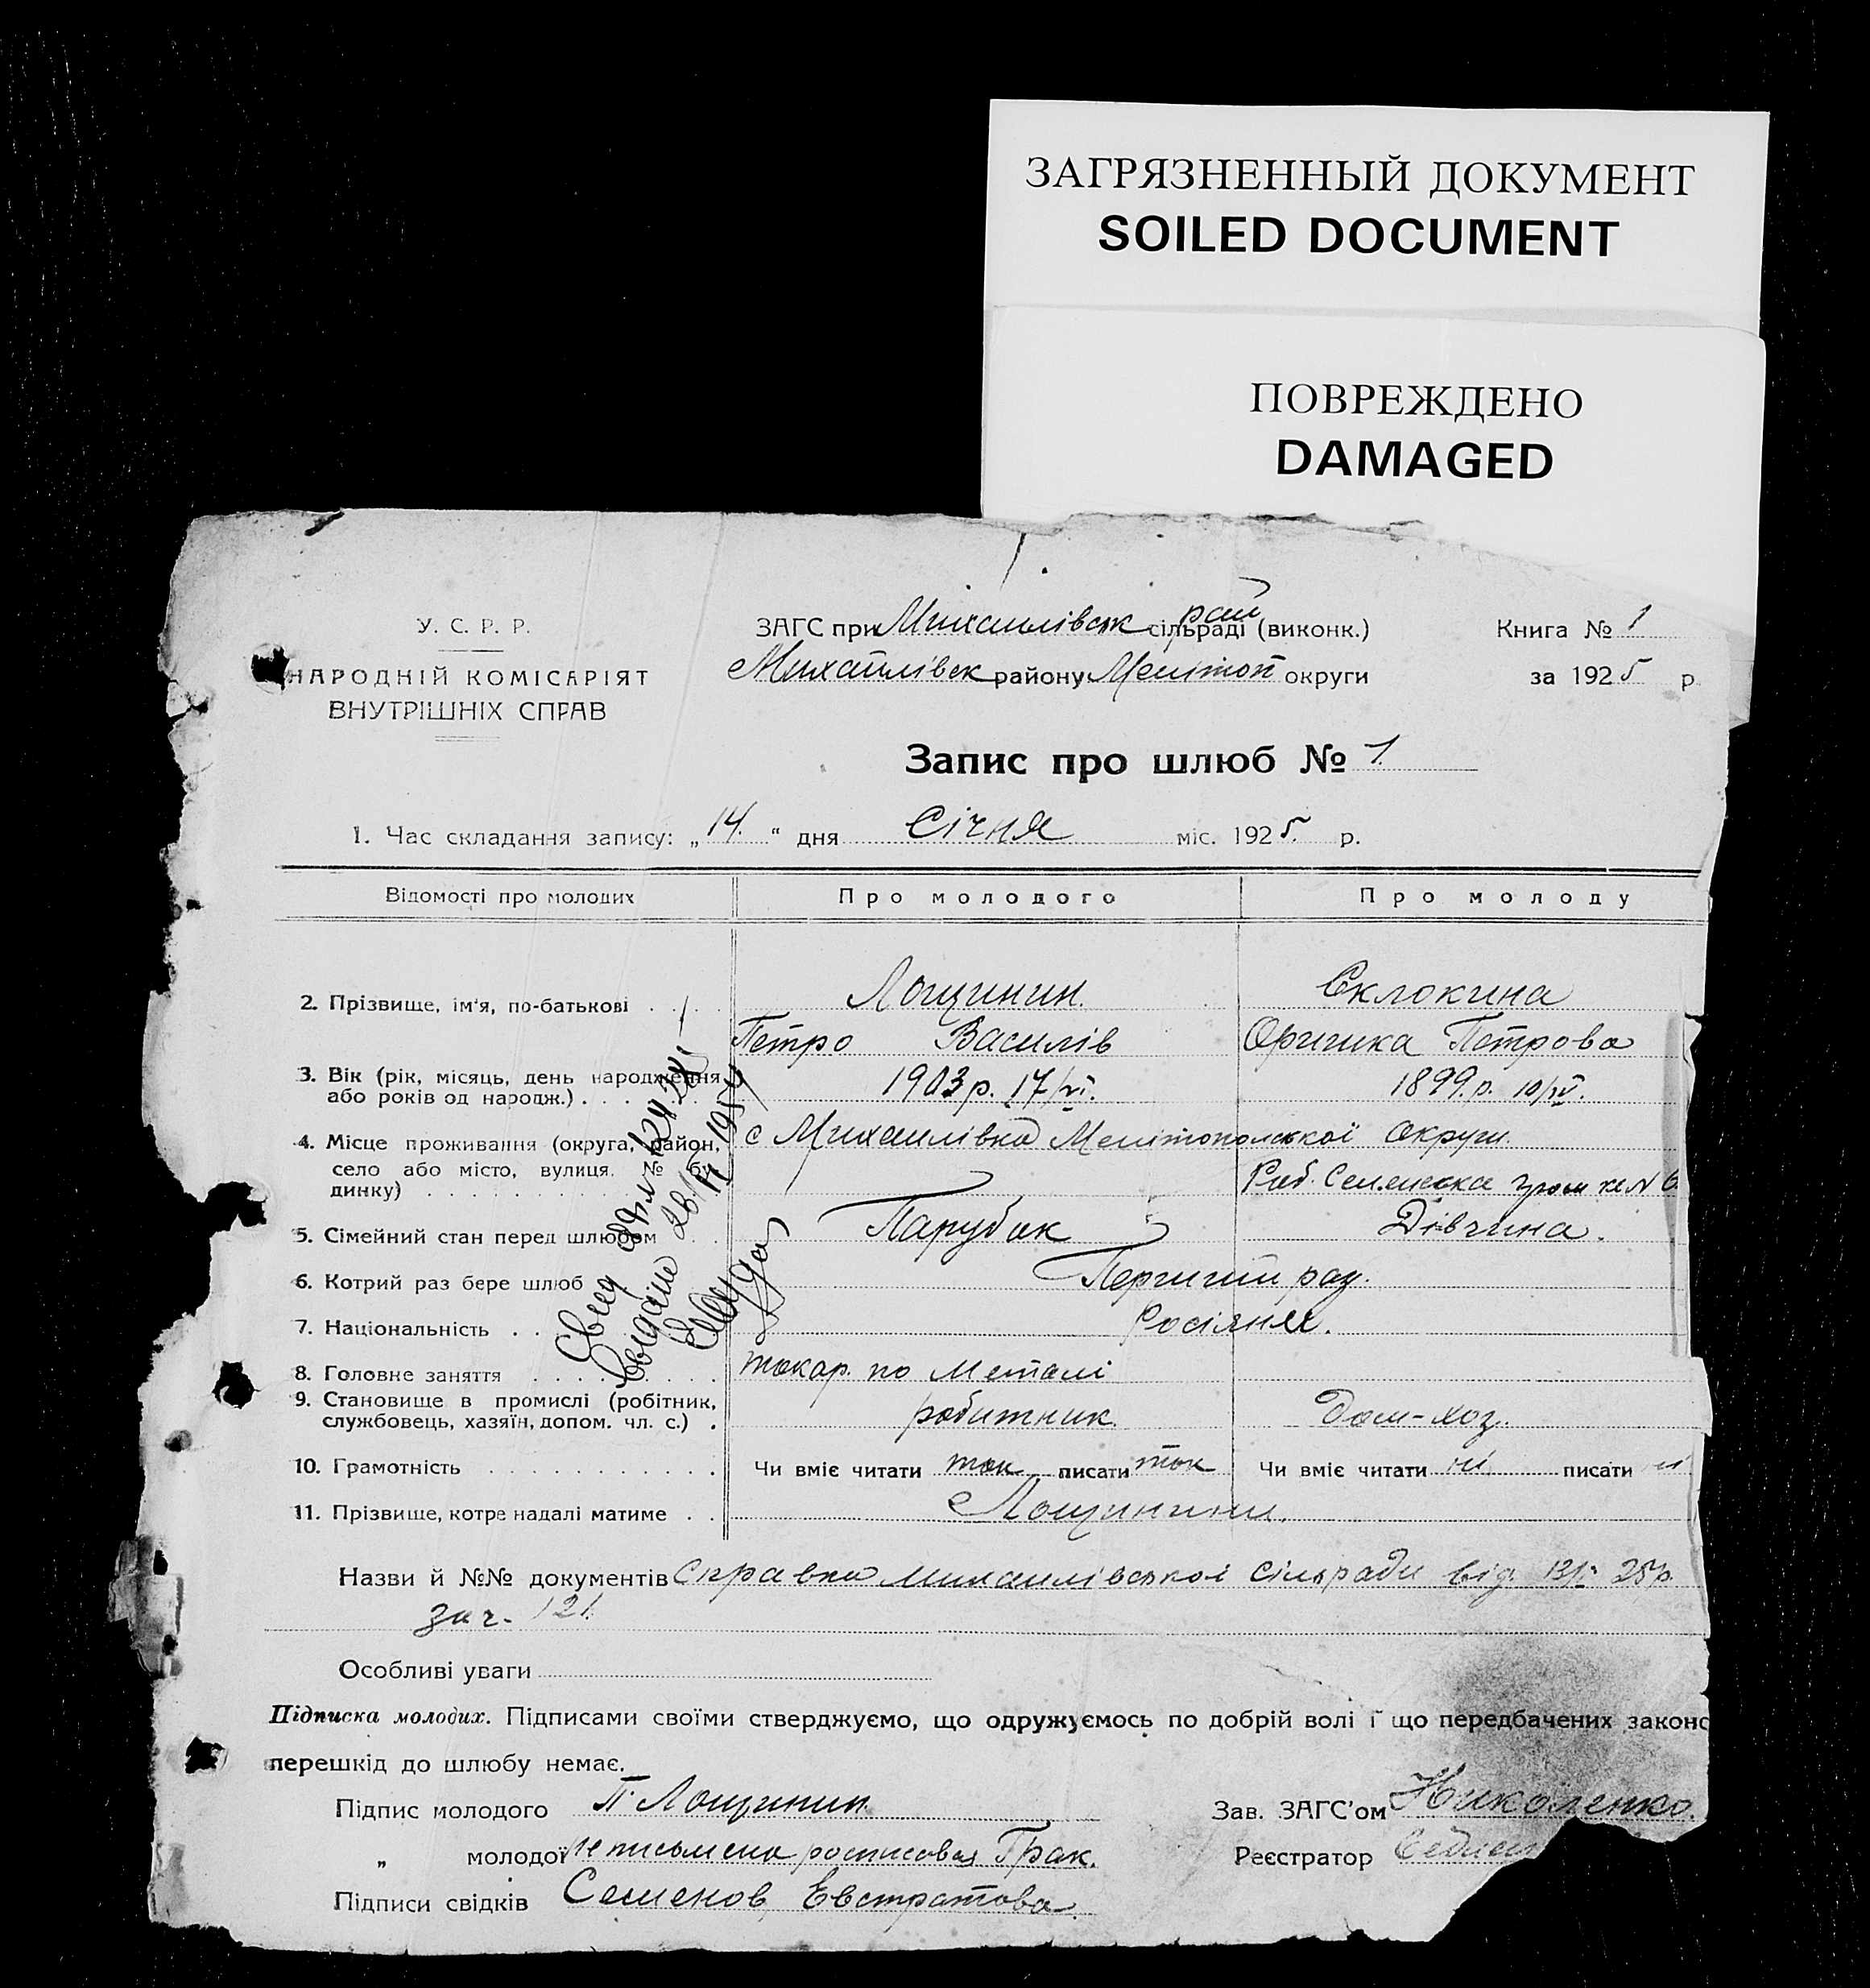 ЗАГРЯЗНЕННЫЙ ДОКУМЕНТ
SOILED DOCUMENT
ПОВРЕЖДЕНО
DAMAGED
У. С. Р. Р.
НАРОДНІЙ КОМІСАРІЯТ
ВНУТРІШНІХ СПРАВ
ЗАГС при Михайлівск рай сільраді (виконк.)
Михайлівск району Мелітоп округи
Книга № 1
за 1925 р
Запис про шлюб № 1
1. Час складання запису: „14. “ дня Січня міс. 1925. р.
Відомості про молодих
Про молодого
Про молоду
2. Прізвище, ім'я, по-батькові
Лощинин.
Склокина
Петро Василів
Оришка Петрова
3. Вік (рік, місяць, день народження або років од народж.)
1903 р. 17/VI.
1899. р. 10/IV.
4. Місце проживання (округа, район, село або місто, вулиця, № будинку)
с Михайлівка Мелітопольскої Округи.
5. Сімейний стан перед шлюбом
Парубок
Дівчина.
6. Котрий раз бере шлюб
Перший раз.
7. Національність
Росіяне.
8. Головне заняття
токар. по Металі
9. Становище в промислі (робітник, службовець, хазяїн, допом. чл. с.)
робитник.
Дом-хоз.
10. Грамотність
Чи вміє читати так писати так
Чи вміє читати ні писати ні
11. Прізвище, котре надалі матиме
Лощинини.
Назви й №№ документів Справка михайлівської сільради від 13/I 25 р.
за ч. 121.
Особливі уваги
Підписка молодих. Підписами своїми стверджуємо, що одружуємось по добрій волі і що передбачених законо
перешкід до шлюбу немає.
Підпис молодого П Лощинин
„ молодої Не письмена росписовся Грак.
Підписи свідків Семенов, Евстратова.
Зав. ЗАГС'ом Николенко.
Реєстратор